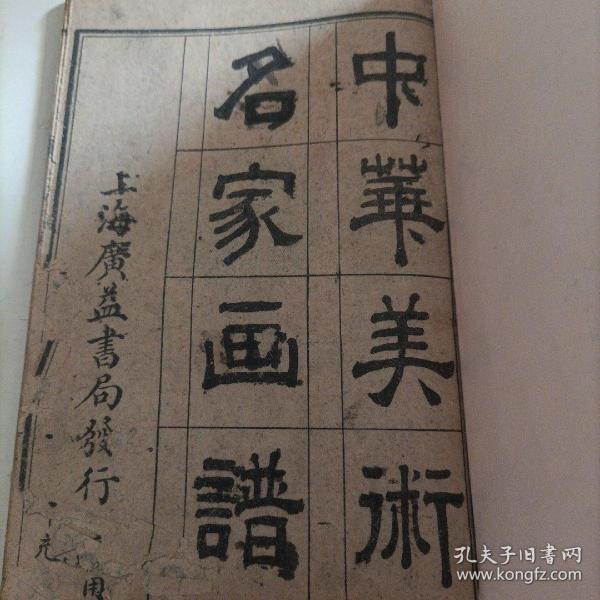 中華美術
名家画譜
上海廣益書局發行
孔夫子旧书网
www.kongfz.com